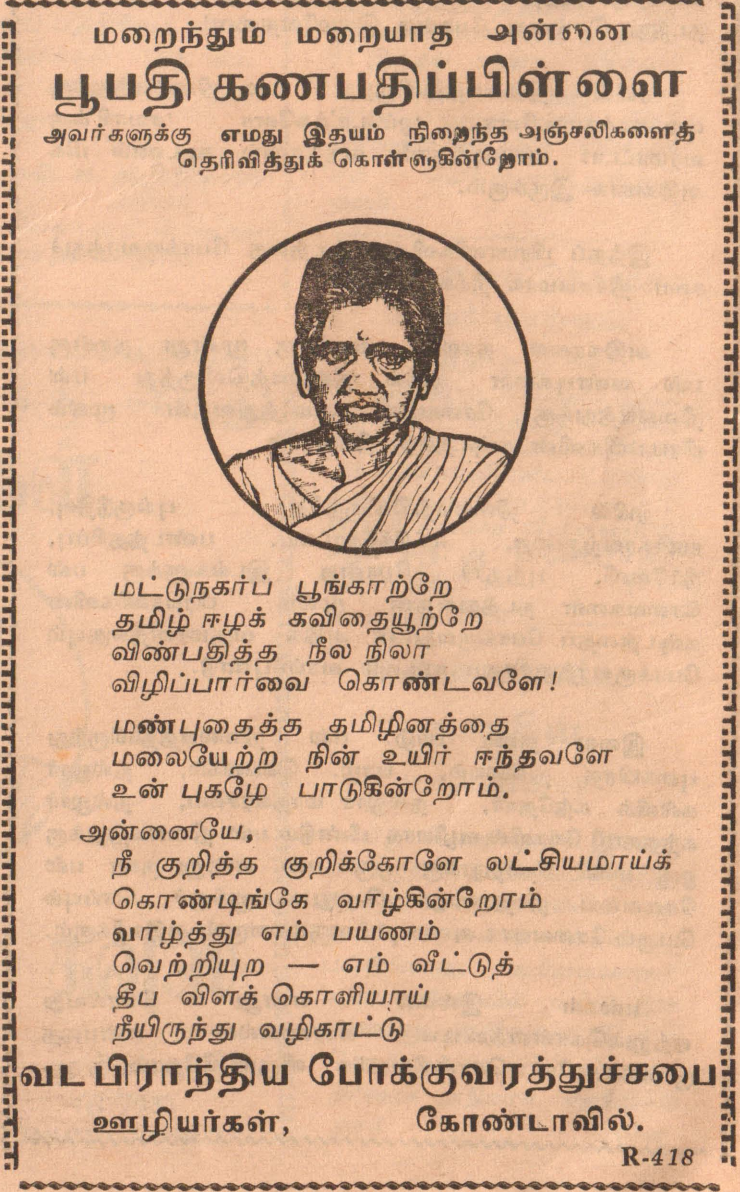 மறைந்தும் மறையாத அன்னை
பூபதி கணபதிப்பிள்ளை
அவர்களுக்கு எமது இதயம் நிறைந்த அஞ்சலிகளைத்
தெரிவித்துக் கொள்ளுகின்றோம்.
மட்டுநகர்ப் பூங்காற்றே
தமிழ் ஈழக் கவிதையூற்றே
விண்பதித்த நீல நிலா
விழிப்பார்வை கொண்டவளே!
மண்புதைத்த தமிழினத்தை
மலையேற்ற நின் உயிர் ஈந்தவளே
உன் புகழே பாடுகின்றோம்.
அன்னையே,
நீ குறித்த குறிக்கோளே லட்சியமாய்க்
கொண்டிங்கே வாழ்கின்றோம்
வாழ்த்து எம் பயணம்
வெற்றியுற — எம் வீட்டுத்
தீப விளக் கொளியாய்
நீயிருந்து வழிகாட்டு
வடபிராந்திய போக்குவரத்துச்சபை
ஊழியர்கள், கோண்டாவில்.
R-418